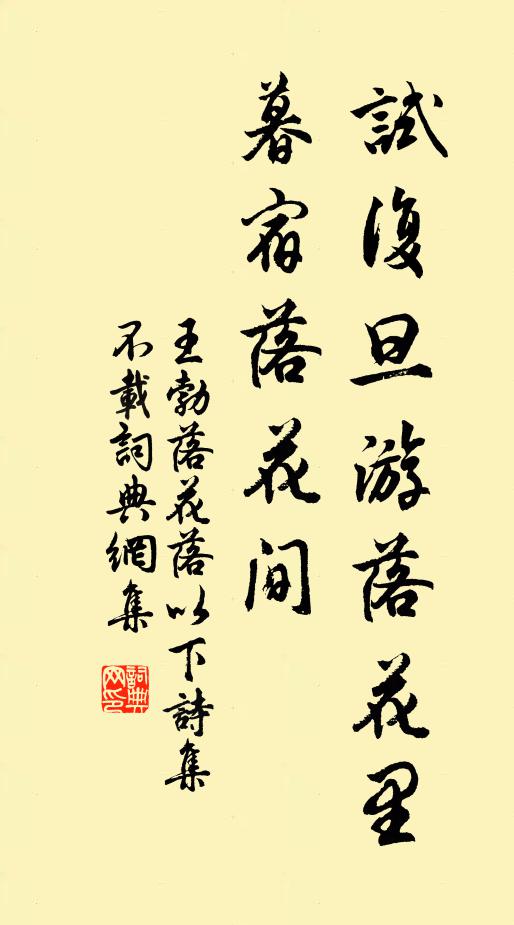 試復旦游落花里
暮宿落花间
王勃落花落以下詩集
不載詞典網集
詞典网印